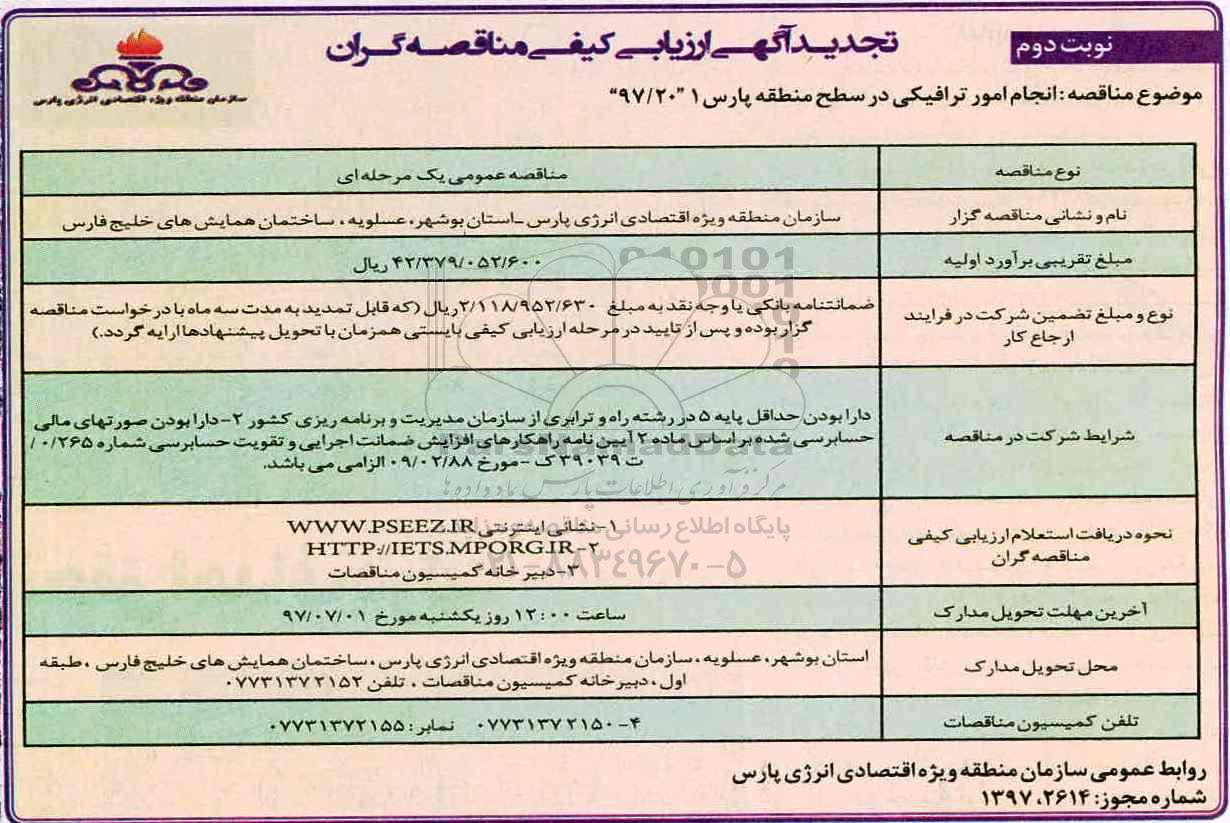 نوبت دوم
تجدید آگهی ارزیابی کیفی مناقصه گران
سازمان منطقه ویژه اقتصادی انرژی پارس
موضوع مناقصه : انجام امور ترافیکی در سطح منطقه پارس ۱ "۹۷/۲۰"
نوع مناقصه
مناقصه عمومی یک مرحله ای
نام و نشانی مناقصه گزار
سازمان منطقه ویژه اقتصادی انرژی پارس -استان بوشهر، عسلویه ، ساختمان همایش های خلیج فارس
مبلغ تقریبی برآورد اولیه
۴۲/۳۷۹/۰۵۲/۶۰۰ ریال
نوع و مبلغ تضمین شرکت در فرایند
ارجاع کار
ضمانتنامه بانکی یا وجه نقد به مبلغ ۲/۱۱۸/۹۵۲/۶۳۰ ریال (که قابل تمدید به مدت سه ماه با درخواست مناقصه
گزار بوده و پس از تایید در مرحله ارزیابی کیفی بایستی همزمان با تحویل پیشنهادها ارایه گردد.)
شرایط شرکت در مناقصه
دارا بودن حداقل پایه ۵ در رشته راه و ترابری از سازمان مدیریت و برنامه ریزی کشور ۲-دارا بودن صورتهای مالی
حسابرسی شده بر اساس ماده ۲ آیین نامه راهکارهای افزایش ضمانت اجرایی و تقویت حسابرسی شماره ۰/۲۶۵ /
ت ۳۹۰۳۹ ک -مورخ ۰۹/۰۲/۸۸ الزامی می باشد.
نحوه دریافت استعلام ارزیابی کیفی
مناقصه گران
۱-نشانی اینترنتی WWW.PSEEZ.IR
۲-HTTP://IETS.MPORG.IR
۳-دبیر خانه کمیسیون مناقصات
آخرین مهلت تحویل مدارک
ساعت ۱۲:۰۰ روز یکشنبه مورخ ۹۷/۰۷/۰۱
محل تحویل مدارک
استان بوشهر، عسلویه ، سازمان منطقه ویژه اقتصادی انرژی پارس ، ساختمان همایش های خلیج فارس ، طبقه
اول ، دبیرخانه کمیسیون مناقصات ، تلفن ۰۷۷۳۱۳۷۲۱۵۲
تلفن کمیسیون مناقصات
۰۷۷۳۱۳۷۲۱۵۰-۴ نمابر : ۰۷۷۳۱۳۷۲۱۵۵
روابط عمومی سازمان منطقه ویژه اقتصادی انرژی پارس
شماره مجوز: ۱۳۹۷،۲۶۱۴
ParsNamadData
مرکز فرآوری اطلاعات پارس نماد داده ها
پایگاه اطلاع رسانی مناقصه و مزایده
۰۲۱-۸۸۳۴۹۶۷۰-۵